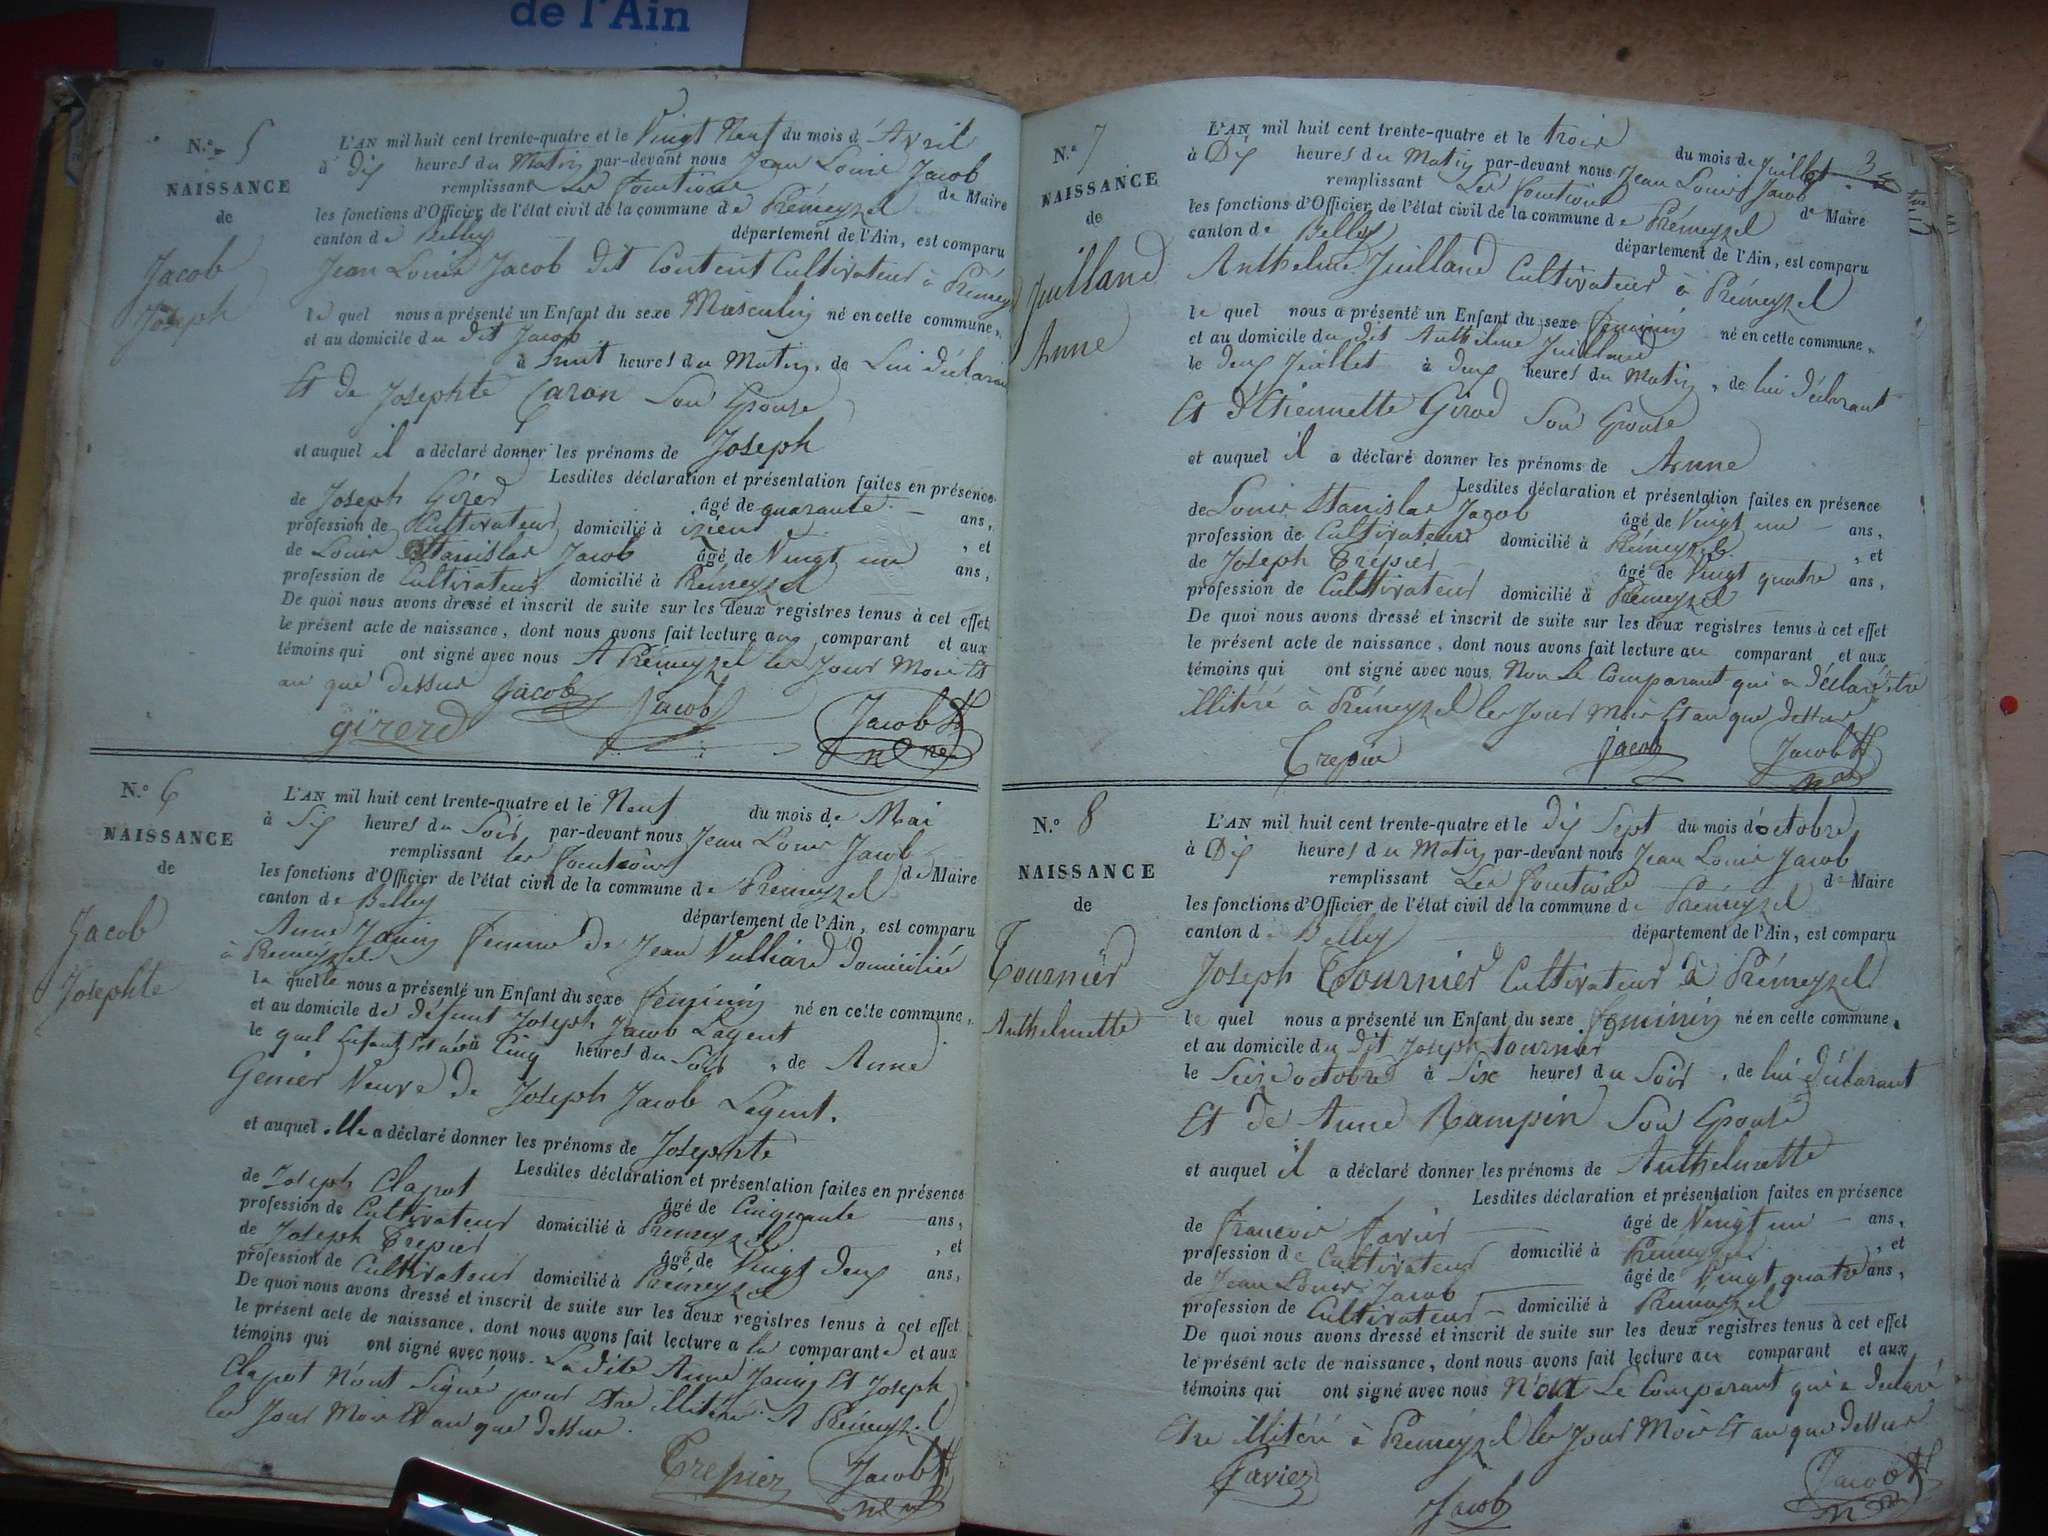 de l'Ain
N.º 5
NAISSANCE
de
Jacob
Joseph
L'AN mil huit cent trente-quatre et le Vingt Neuf du mois d'Avril
à Dix heures du Matin par-devant nous Jean Louis Jacob
remplissant Les fonctions de Maire
les fonctions d'Officier de l'état civil de la commune de Prémeyzel
canton de Belley département de l'Ain, est comparu
Jean Louis Jacob dit Content Cultivateur à Prémeyzel
le quel nous a présenté un Enfant du sexe Masculin né en cette commune,
et au domicile du dit Jacob
à huit heures du Matin, de Lui déclarant
Et de Josephte Caron Son Epouse
et auquel il a déclaré donner les prénoms de Joseph
Lesdites déclaration et présentation faites en présence
de Joseph Girerd âgé de quarante ans,
profession de Cultivateur domicilié à izieu , et
de Louis Stanislas Jacob âgé de Vingt un ans,
profession de Cultivateur domicilié à Prémeyzel
De quoi nous avons dressé et inscrit de suite sur les deux registres tenus à cet effet
le présent acte de naissance, dont nous avons fait lecture au comparant et aux
témoins qui ont signé avec nous A Prémeyzel les Jour Mois Et
an que dessus Jacob Jacob
girerd Jacob
N.º 6
NAISSANCE
de
Jacob
Josephte
L'AN mil huit cent trente-quatre et le Neuf du mois de Mai
à Six heures du Soir par-devant nous Jean Louis Jacob
remplissant les fonctions de Maire
les fonctions d'Officier de l'état civil de la commune de Prémeyzel
canton de Belley département de l'Ain, est comparu
Anne Janin femme de Jean Vulliard domiciliée
à Prémeyzel
la quelle nous a présenté un Enfant du sexe féminin né en cette commune,
et au domicile de défunt Joseph Jacob Lagent
le quel Enfant est né à Cinq heures du Soir, de Anne
Genier Veuve de Joseph Jacob Lagent.
et auquel elle a déclaré donner les prénoms de Josephte
Lesdites déclaration et présentation faites en présence
de Joseph Clapot âgé de Cinquante ans,
profession de Cultivateur domicilié à Prémeyzel , et
de Joseph Trepier âgé de Vingt deux ans,
profession de Cultivateur domicilié à Prémeyzel
De quoi nous avons dressé et inscrit de suite sur les deux registres tenus à cet effet
le présent acte de naissance, dont nous avons fait lecture a la comparante et aux
témoins qui ont signé avec nous. La dite Anne Janin Et Joseph
Clapot N'ont Signé pour Etre illitéré. A Prémeyzel
les Jour Mois Et an que dessus.
Trepier Jacob
N.º 7
NAISSANCE
de
Juilland
Anne
L'AN mil huit cent trente-quatre et le trois du mois de Juillet 3
à Dix heures du Matin par-devant nous Jean Louis Jacob
remplissant Les fonctions de Maire
les fonctions d'Officier de l'état civil de la commune de Prémeyzel
canton de Belley département de l'Ain, est comparu
Anthelme Juilland Cultivateur à Prémeyzel
le quel nous a présenté un Enfant du sexe féminin né en cette commune,
et au domicile du dit Anthelme Juilland
le deux Juillet à deux heures du Matin, de lui déclarant
Et d'Etiennette Girod Son Epouse
et auquel il a déclaré donner les prénoms de Anne
Lesdites déclaration et présentation faites en présence
de Louis Stanislas Jacob âgé de Vingt un ans,
profession de Cultivateur domicilié à Prémeyzel , et
de Joseph Trépier âgé de Vingt quatre ans,
profession de Cultivateur domicilié à Prémeyzel
De quoi nous avons dressé et inscrit de suite sur les deux registres tenus à cet effet
le présent acte de naissance, dont nous avons fait lecture au comparant et aux
témoins qui ont signé avec nous, Non Le Comparant qui a déclaré être
illitéré à Prémeyzel les Jour Mois Et an que dessus
Trepier Jacob Jacob
N.º 8
NAISSANCE
de
Tournier
Anthelmette
L'AN mil huit cent trente-quatre et le Dix Sept du mois d'octobre
à Dix heures du Matin par-devant nous Jean Louis Jacob
remplissant Les fonctions de Maire
les fonctions d'Officier de l'état civil de la commune de Prémeyzel
canton de Belley département de l'Ain, est comparu
Joseph Tournier Cultivateur à Prémeyzel
le quel nous a présenté un Enfant du sexe féminin né en cette commune,
et au domicile du dit Joseph Tournier
le Seize octobre à Six heures du Soir, de lui déclarant
Et de Anne Rampin Son Epouse
et auquel il a déclaré donner les prénoms de Anthelmette
Lesdites déclaration et présentation faites en présence
de françois favier âgé de Vingt un ans,
profession de Cultivateur domicilié à Prémeyzel , et
de Jean Louis Jacob âgé de Vingt quatre ans,
profession de Cultivateur domicilié à Prémeyzel
De quoi nous avons dressé et inscrit de suite sur les deux registres tenus à cet effet
le présent acte de naissance, dont nous avons fait lecture au comparant et aux
témoins qui ont signé avec nous Le Comparant qui a déclaré
Etre illitéré à Prémeyzel les Jour Mois Et an que dessus
favier Jacob
Jacob